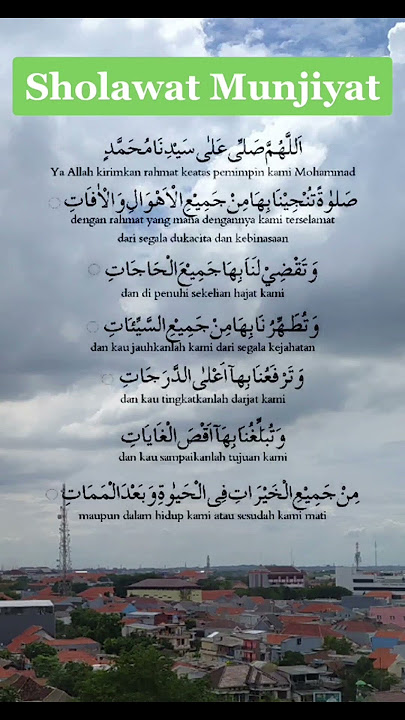 Sholawat Munjiyat
اَللّٰهُمَّ صَلِّى عَلٰى سَيِّدِنَا مُحَمَّدٍ
Ya Allah kirimkan rahmat keatas pemimpin kami Mohammad
صَلٰوةً تُنْجِيْنَا بِهَا مِنْ جَمِيْعِ الْاَهْوَالِ وَالْاٰفَاتِ
dengan rahmat yang mana dengannya kami terselamat
dari segala dukacita dan kebinasaan
وَتَقْضِيْ لَنَا بِهَا جَمِيْعَ الْحَاجَاتِ
dan di penuhi sekelian hajat kami
وَتُطَهِّرُنَا بِهَا مِنْ جَمِيْعِ السَّيِّئَاتِ
dan kau jauhkanlah kami dari segala kejahatan
وَتَرْفَعُنَا بِهَآ اَعْلٰى الدَّرَجَاتِ
dan kau tingkatkanlah darjat kami
وَتُبَلِّغُنَا بِهَآ اَقْصَ الْغَايَاتِ
dan kau sampaikanlah tujuan kami
مِنْ جَمِيْعِ الْخَيْرَاتِ فِى الْحَيٰوةِ وَبَعْدَ الْمَمَاتِ
maupun dalam hidup kami atau sesudah kami mati